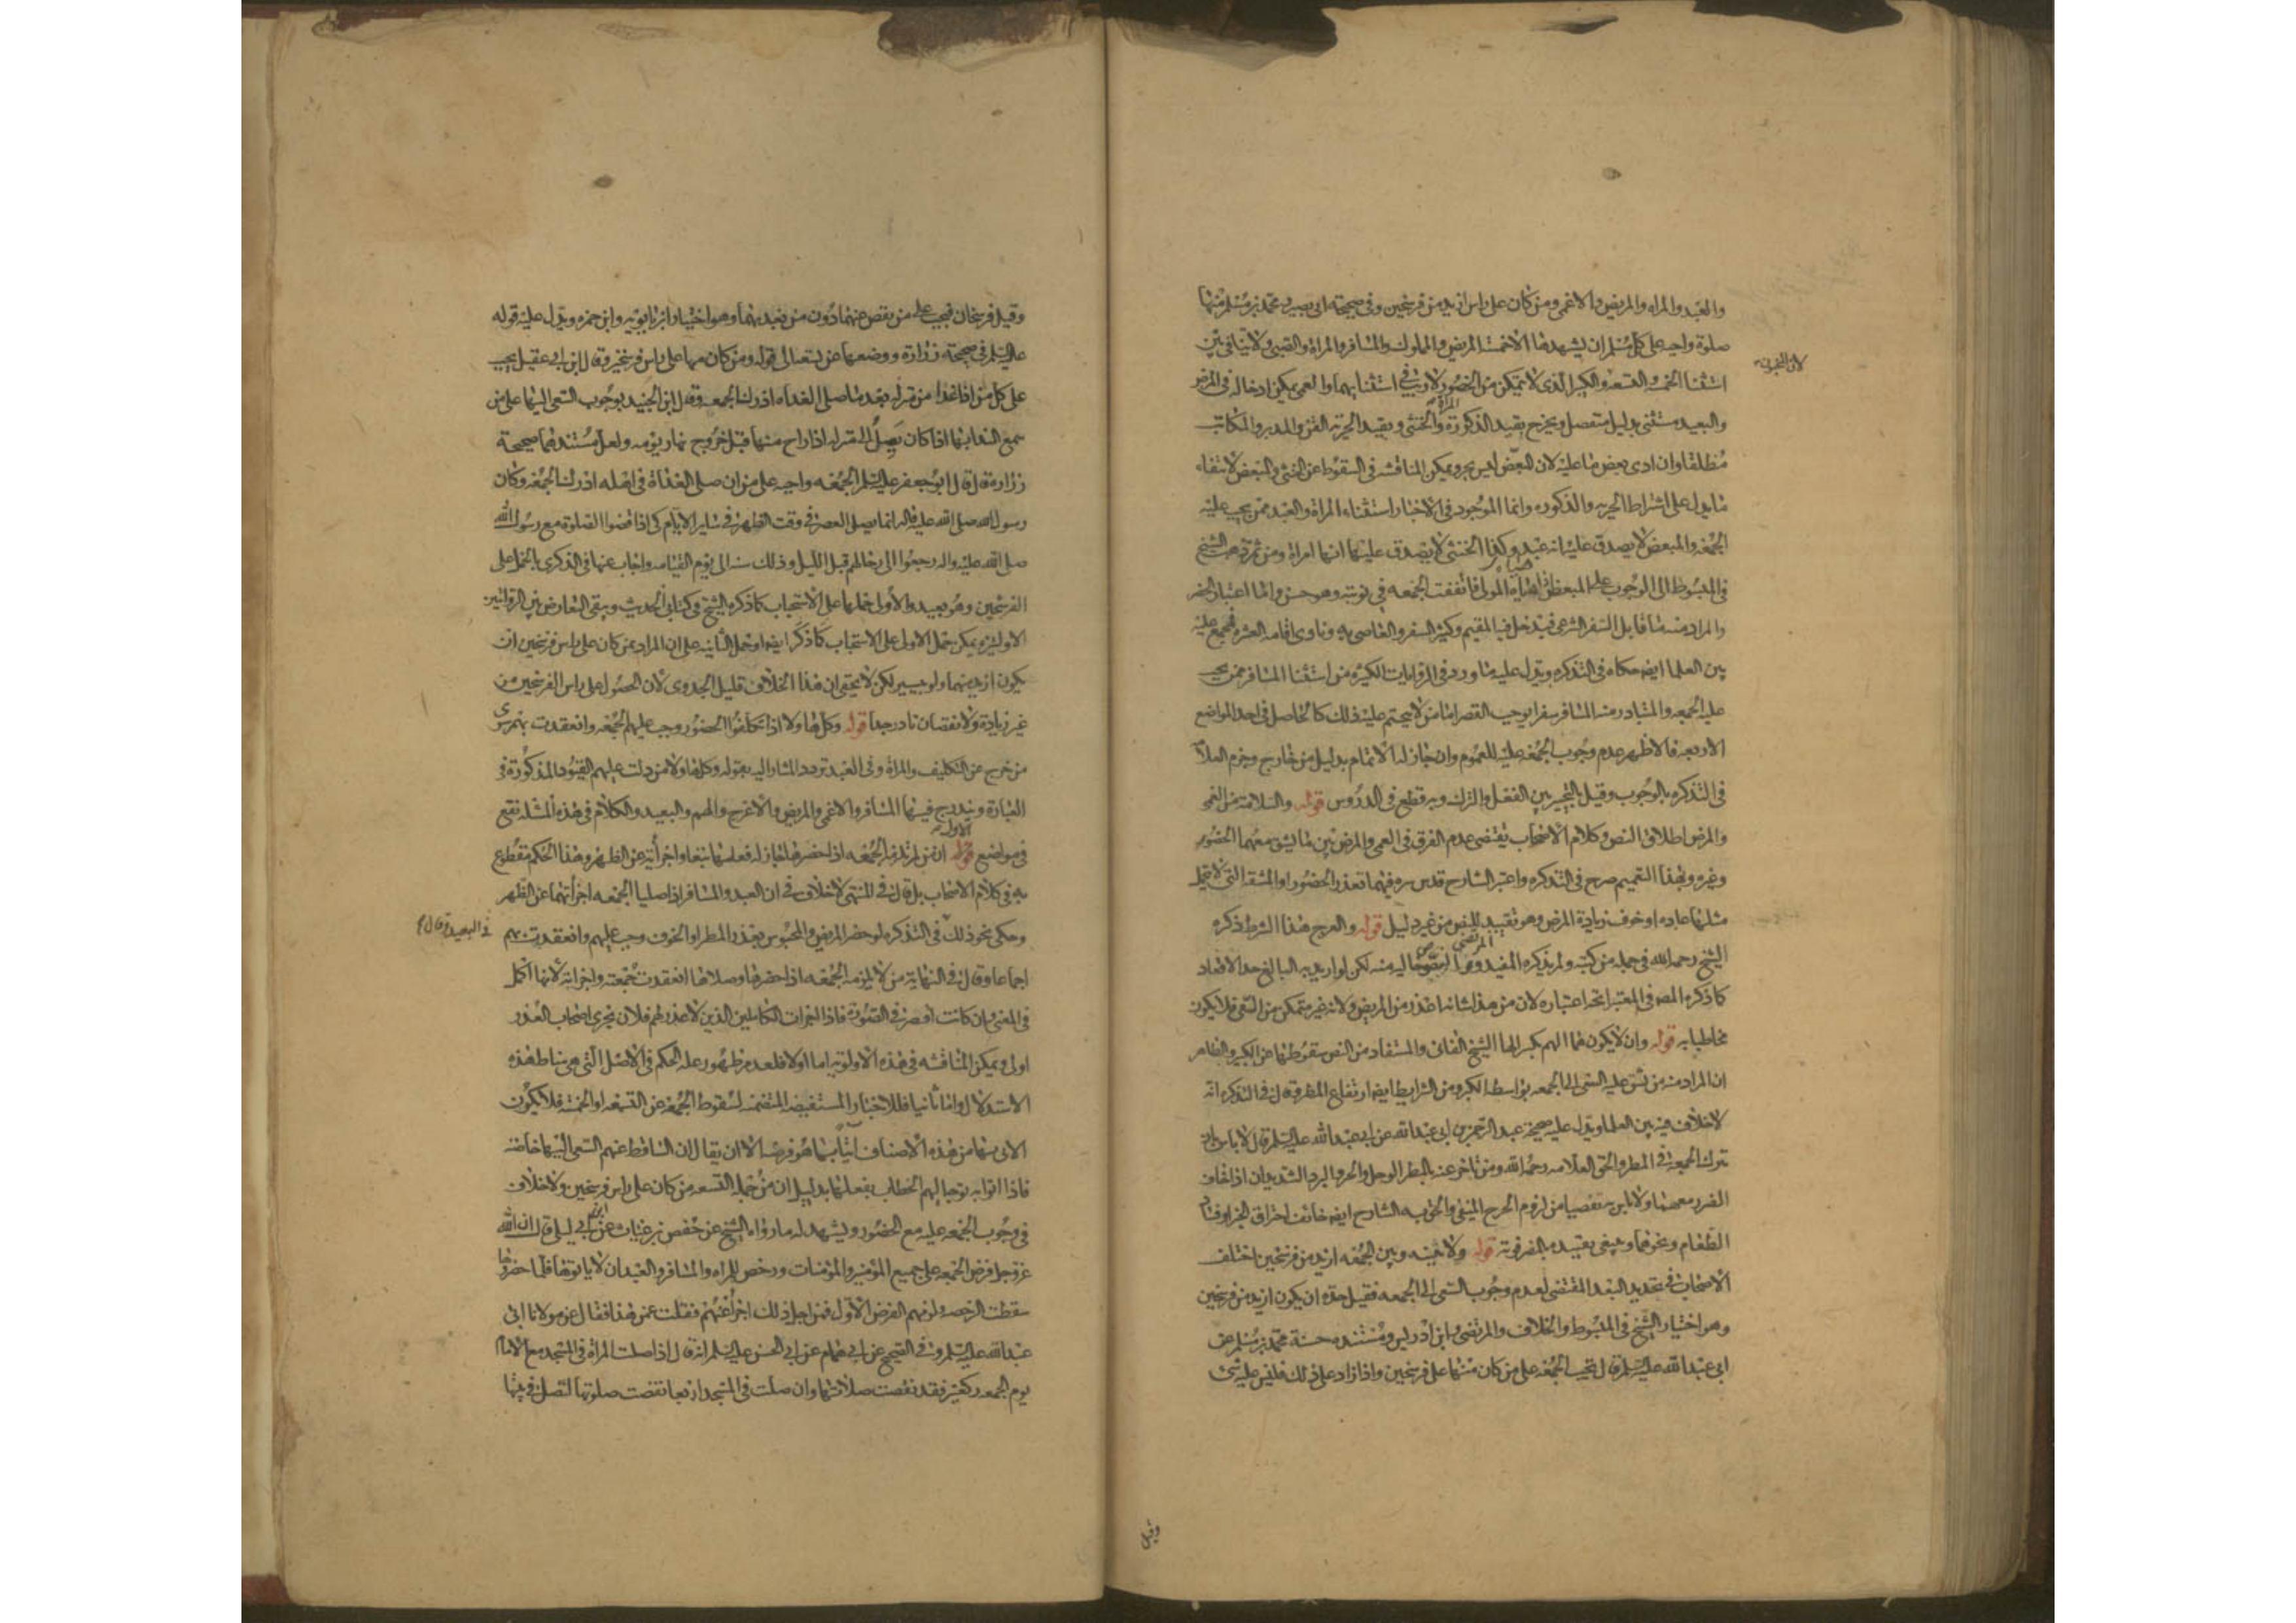 والعبد والمراه والمريض والاعمى ومن كان على راس ازيد من فرسخين وفى صحيحة ابى بصير ومحمد بن مسلم منها
صلوة واجبه على كل مسلم ان يشهدها الا خمسة المريض والمملوك والمسافر والمراة والصبى ولا ينافى بين
لان النصوص
استثنا الخمسه والتسعه والكبير الذى لا يتمكن من الحضور لا ريب فى استثنائهما والعمى يمكن ادخاله فى المرض
والبعيد مستثنى بدليل منفصل ويخرج بقيد الذكورة المراة والخنثى وبقيد الحرية القن والمدبر والمكاتب
مطلقا وان ادى بعض ما عليه لان المبعض ليس بحر ويمكن المناقشه فى السقوط عن الخنثى والمبعض لانتفاء
ما يدل على اشتراط الحريه والذكوره وانما الموجود فى الاخبار استثناء المراة والعبد ممن يجب عليه
الجمعه والمبعض لا يصدق عليه انه عبد وكذا الخنثى لا يصدق عليها انها امراة ومن ثم ذهب الشيخ
فى المبسوط الى الوجوب على المبعض اذا هاياه المولى فاتفقت الجمعه فى نوبته وهو حسن واما اعتبار الحضر
والمراد منه ما قابل السفر الشرعى فيدخل فيه المقيم وكثير السفر والعاصى به وناوى اقامه العشره فمجمع عليه
بين العلما ايضا حكاه فى التذكره ويدل عليه ما ورد فى الروايات الكثيره من استثنا المسافر ممن يجب
عليه الجمعه والمتبادر منه المسافر سفرا يوجب القصر اما من لا يتحتم عليه ذلك كالحاصل فى احد المواضع
الاربعه فالاظهر عدم وجوب الجمعة عليه للعموم وان جاز له الاتمام بدليل من خارج وجزم العلا
فى التذكره بالوجوب وقيل بالتخيير بين الفعل والترك وبه قطع فى الدروس قوله والسلامه من العمى
والمرض اطلاق النص وكلام الاصحاب يقتضى عدم الفرق فى العمى والمرض بين ما يشق معهما الحضور
وغيره وبهذا التعميم صرح فى التذكره واعتبر الشارح قدس سره فيهما تعذر الحضور او المشقة التى لا يتحمل
مثلها عاده او خوف زيادة المرض وهو تقييد للنص من غير دليل قوله والعرج هذا الشرط ذكره
الشيخ رحمه الله فى جمله من كتبه ولم يذكره المفيد ولا المرتضى والنصوص خاليه منه لكن لو اريد به البالغ حد الاقعاد
كما ذكره المصه فى المعتبر اتجه اعتباره لان من هذا شانه اعذر من المريض ولانه غير متمكن من السعى فلا يكون
مخاطبا به قوله وان لا يكون هما الهم بكسر الها الشيخ الفانى والمستفاد من النص سقوطها عن الكبير والظاهر
ان المراد منه من شق عليه السعى الى الجمعه بواسطه الكبر ومن الشرايط ايضا ارتفاع المطر وقال فى التذكره انه
لا خلاف فيه بين العلما ويدل عليه صحيحة عبد الرحمن بن ابى عبد الله عن ابى عبد الله عليه السلم قال لا باس بان
تترك الجمعة فى المطر والحق العلامه رحمه الله ومن تاخر عنه بالمطر الوحل والحر والبرد الشديدان اذا خاف
الضرر معهما ولا باس به تفصيا من لزوم الحرج المنفى والحق به الشارح ايضا خائف احتراق الخبز او فساد
الطعام ونحوهما وينبغى تقييده بالضرورة قوله ولا بينه وبين الجمعه ازيد من فرسخين اختلف
الاصحاب فى تحديد البعد المقتضى لعدم وجوب السعى الى الجمعه فقيل حده ان يكون ازيد من فرسخين
وهو اختيار الشيخ فى المبسوط والخلاف والمرتضى وابن ادريس ومستنده حسنة محمد بن مسلم عن
ابى عبد الله عليه السلم قال تجب الجمعه على من كان منها على فرسخين واذا زاد على ذلك فليس عليه شئ
وقيل
وقيل فرسخان فيجب على من نقص عنهما دون من بعد بهما وهو اختيار ابن بابويه وابن حمزه ويدل عليه قوله
عليه السلم فى صحيحة زرارة ووضعها عن تسعه الى قوله ومن كان منها على راس فرسخين وقال ابن ابى عقيل يجب
على كل من اذا غدا من منزله بعد ما صلى الغداه ادرك الجمعه وقال ابن الجنيد بوجوب السعى اليها على من
سمع الندا بها اذا كان يصل الى منزله اذا راح منها قبل خروج نهار يومه ولعل مستندهما صحيحة
زرارة قال قال ابو جعفر عليه السلم الجمعه واجبه على من ان صلى الغداة فى اهله ادرك الجمعه وكان
رسول الله صلى الله عليه واله انما يصلى العصر فى وقت الظهر فى سائر الايام كى اذا قضوا الصلوة مع رسول الله
صلى الله عليه واله رجعوا الى رحالهم قبل الليل وذلك سنه الى يوم القيامه واجاب عنها فى الذكرى بالحمل على
الفرسخين وهو بعيد والاولى حملها على الاستحباب كما ذكره الشيخ فى كتابى الحديث ويبقى التعارض بين الروايتين
الاوليتين ويمكن حمل الاولى على الاستحباب كما ذكر ايضا وحمل الثانية على ان المراد بمن كان على راس فرسخين ان
يكون ازيد منهما ولو بيسير لكن لا يخفى ان هذا الخلاف قليل الجدوى لان الحصول على راس الفرسخين من
غير زيادة ولا نقصان نادر جدا قوله وكل هاولا اذا تكلفوا الحضور وجب عليهم الجمعه وانعقدت بهم سوى
من خرج عن التكليف والمراة وفى العبد تردد المشار اليه بقوله وكل هاولا من دلت عليهم القيود المذكورة فى
العبارة ويندرج فيها المسافر والاعمى والمريض والاعرج والهم والبعيد والكلام فى هذه المسئلة يقع
فى مواضع الاول قوله ان من لم تلزمه الجمعه اذا حضرها جاز له فعلها تبعا واجزأته عن الظهر وهذا الحكم مقطوع
به فى كلام الاصحاب بل قال فى المنتهى لا خلاف فى ان العبد والمسافر اذا صليا الجمعه اجزأتهما عن الظهر
فى البعيد وقال
وحكى نحو ذلك فى التذكره لو حضر المريض والمحبوس بعذر المطر او الخوف وجب عليهم وانعقدت بهم
اجماعا وقال فى النهاية من لا يلزمه الجمعه اذا حضرها وصلاها انعقدت جمعته واجزأته لانها اكمل
فى المعنى وان كانت اقصر فى الصورة فاذا اجزات الكاملين الذين لا عذر لهم فلان تجزى اصحاب العذر
اولى ويمكن المناقشه فى هذه الاولوية اما اولا فلعدم ظهور علة الحكم فى الاصل التى هى مناط هذه
الاستدلال واما ثانيا فللاخبار المستفيضه المتضمنه لسقوط الجمعه عن التسعه او الخمسه فلا يكون
الاتى بها من هذه الاصناف اتيا بما هو فرضه الا ان يقال ان الساقط عنهم السعى اليها خاصة
فاذا اتوا به توجه اليهم الخطاب بفعلها بدليل ان من جملة التسعه من كان على راس فرسخين ولا خلاف
فى وجوب الجمعه عليه مع الحضور ويشهد له ما رواه الشيخ عن حفص بن غياث عن ابن ابى ليلى قال ان الله
عز وجل فرض الجمعه على جميع المؤمنين والمؤمنات ورخص للمراه والمسافر والعبد ان لا ياتوها فلما حضروها
سقطت الرخصه ولزمهم الفرض الاول فمن اجل ذلك اجزأ عنهم فقلت عمن هذا فقال عن مولانا ابى
عبد الله عليه السلم وفى الصحيح عن ابى همام عن ابى الحسن عليه السلم انه قال اذا صلت المراة فى المسجد مع الامام
يوم الجمعه ركعتين فقد نقصت صلاتها وان صلت فى المسجد اربعا نقصت صلوتها لتصل فى بيتها